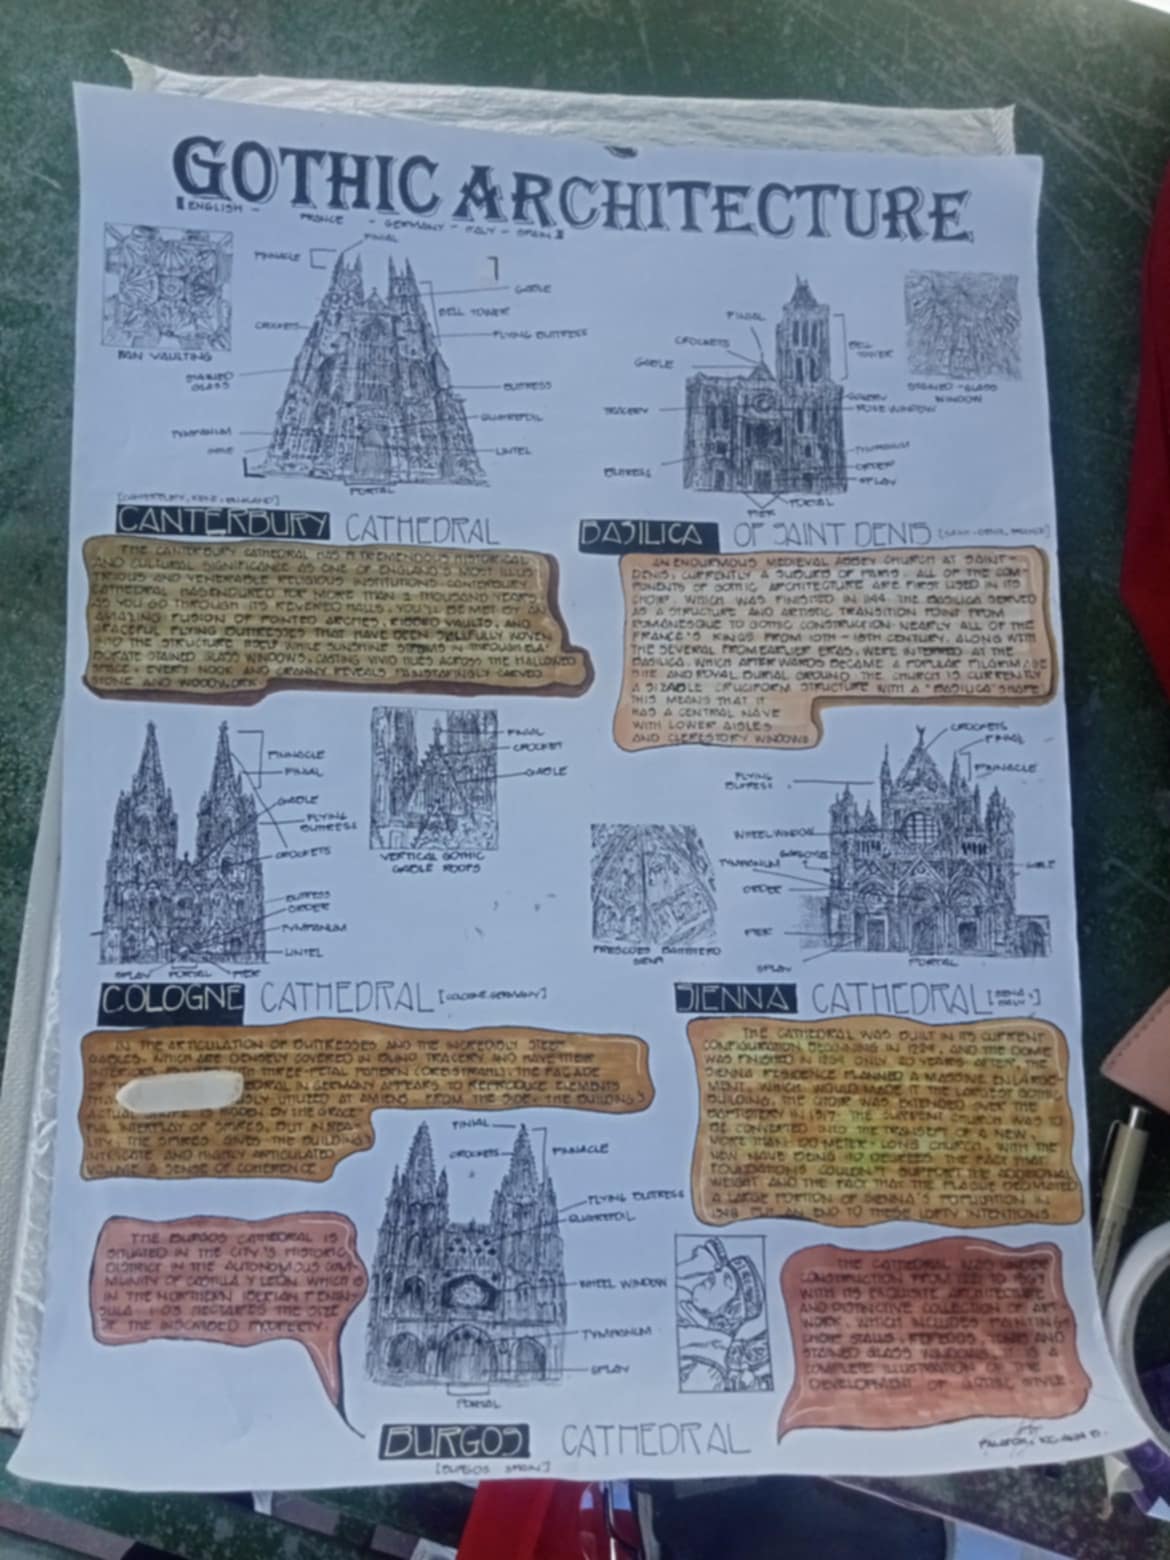 GOTHIC ARCHITECTURE
[ENGLISH -
FRANCE - GERMANY - ITALY - SPAIN]
FINIAL
PINNACLE
GABLE
BELL TOWER
CROCKETS
FLYING BUTRESS
STAINED
GLASS
BUTRESS
QUATREFOIL
TYMPANUM
LINTEL
PORTAL
VAULTING
FINIAL
CROCKETS
GABLE
BELL
TOWER
TRACERY
ROSE WINDOW
TYMPANUM
BUTRESS
ORDER
SPLAY
PORTAL
PIER
STAINED-GLASS
WINDOW
[CANTERBURY, KENT, ENGLAND]
CANTERBURY CATHEDRAL
BASILICA OF SAINT DENIS
THE CANTERBURY CATHEDRAL HAS A TREMENDOUS HISTORICAL
AND CULTURAL SIGNIFICANCE AS ONE OF ENGLAND'S MOST
AND VENERABLE RELIGIOUS INSTITUTIONS. CANTERBURY
CATHEDRAL HAS ENDURED FOR MORE THAN A THOUSAND YEARS.
AS YOU GO THROUGH ITS REVERED HALLS, YOU'LL BE MET BY AN
AMAZING FUSION OF POINTED ARCHES, RIBBED VAULTS, AND
GRACEFUL FLYING BUTRESSES THAT HAVE BEEN SKILLFULLY WOVEN
THE STRUCTURE ITSELF WHILE SUNSHINE STREAMS IN THROUGH
STAINED GLASS WINDOWS, CASTING VIVID HUES ACROSS THE HALLOWED
SPACE. EVERY NOOK AND CRANNY REVEALS PAINSTAKINGLY CARVED
STONE AND WOODWORK
AN ENOURMOUS MEDIEVAL ABBEY CHURCH AT SAINT-
DENIS, CURRENTLY A SUBURB OF PARIS. ALL OF THE COM-
PONENTS OF GOTHIC ARCHITECTURE ARE FIRST USED IN ITS
WHICH WAS FINISHED IN 1144. THE BASILICA SERVED
AS A STRUCTURE AND ARTISTIC TRANSITION POINT FROM
ROMANESQUE TO GOTHIC CONSTRUCTION. NEARLY ALL OF THE
FRANCE'S KINGS FROM 10TH - 18TH CENTURY, ALONG WITH
THE SEVERAL FROM EARLIER ERAS, WERE INTERRED AT THE
BASILICA, WHICH AFTERWARDS BECAME A POPULAR PILGRIMAGE
SITE AND ROYAL BURIAL GROUND. THE CHURCH IS CURRENTLY
A SIZABLE CRUCIFORM STRUCTURE WITH A "BASILICA" SHAPE
THIS MEANS THAT IT
HAS A CENTRAL NAVE
WITH LOWER AISLES
AND CLERESTORY WINDOWS
PINNACLE
FINIAL
GABLE
FLYING
BUTRESS
CROCKETS
BUTRESS
ORDER
TYMPANUM
LINTEL
SPLAY PORTAL PIER
FINIAL
CROCKET
GABLE
VERTICAL GOTHIC
GABLE ROOFS
CROCKETS
FINIAL
PINNACLE
FLYING
BUTRESS
WHEEL WINDOW
TYMPANUM
ORDER
PIER
SPLAY
PORTAL
GABLE
FRESCOES
SIENA
COLOGNE CATHEDRAL [COLOGNE, GERMANY]
SIENNA CATHEDRAL
IN THE ARTICULATION OF BUTRESSES AND THE INCREDIBLY STEEP
GABLES, WHICH ARE DENSELY COVERED IN BLIND TRACERY AND HAVE THEIR
THREE-PETAL PATTERN THE FACADE
IN GERMANY APPEARS TO REPRODUCE ELEMENTS
UTILIZED AT AMIENS. FROM THE SIDE, THE BUILDING'S
ACTUAL IS HIDDEN BY THE GRACE-
FUL INTERPLAY OF SPIRES, BUT IN REA-
LITY, THE SPIRES GIVES THE BUILDING'S
INTRICATE AND HIGHLY ARTICULATED
A SENSE OF COHERENCE
THE CATHEDRAL WAS BUILT IN ITS CURRENT
CONFIGURATION BEGINNING IN AND THE DOME
WAS FINISHED IN YEARS AFTER
SIENNA RESIDENCE PLANNED A MASSIVE ENLARGE-
MENT, WHICH WOULD MAKE THE LARGEST GOTHIC
BUILDING. THE WAS EXTENDED OVER THE
BAPTISTERY IN 1317. THE CHURCH WAS TO
BE CONVERTED INTO THE TRANSEPT OF A NEW,
MORE THAN METER LONG CHURCH, WITH THE
NEW NAVE BEING THE FACT THAT
FOUNDATIONS COULDN'T SUPPORT THE ADDITIONAL
WEIGHT AND THE FACT THAT THE PLAGUE DECIMATED
A LARGE PORTION OF SIENNA'S POPULATION IN
1348 PUT AN END TO THESE LOFTY INTENTIONS
FINIAL
CROCKETS
PINNACLE
FLYING BUTRESS
QUATREFOIL
WHEEL WINDOW
TYMPANUM
SPLAY
PORTAL
THE BURGOS CATHEDRAL IS
SITUATED IN THE CITY'S HISTORIC
DISTRICT IN THE AUTONOMOUS COM-
MUNITY OF CASTILLA Y LEON, WHICH IS
IN THE NORTHERN IBERIAN PENIN-
SULA. 1.03 HECTARES THE SIZE
OF THE INSCRIBED PROPERTY.
THE CATHEDRAL WAS UNDER
CONSTRUCTION FROM
WITH ITS EXQUISITE ARCHITECTURE
AND DISTINCTIVE COLLECTION OF ART-
WORK, WHICH INCLUDES PAINTINGS
CHOIR STALLS, TOMBS AND
STAINED GLASS WINDOWS, IS A
COMPLETE ILLUSTRATION OF THE
DEVELOPMENT OF GOTHIC STYLE
BURGOS CATHEDRAL
[BURGOS SPAIN]